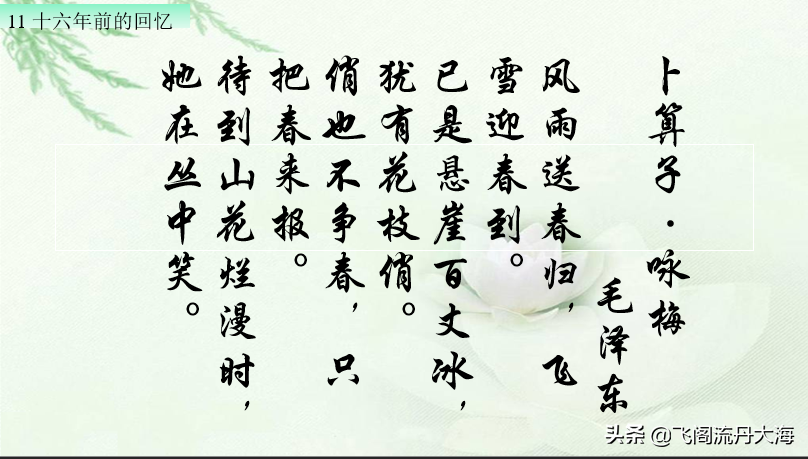 11 十六年前的回忆
卜算子·咏梅
毛泽东
风雨送春归，飞
雪迎春到。
已是悬崖百丈冰，
犹有花枝俏。
俏也不争春，只
把春来报。
待到山花烂漫时，
她在丛中笑。
头条 @飞阁流丹大海